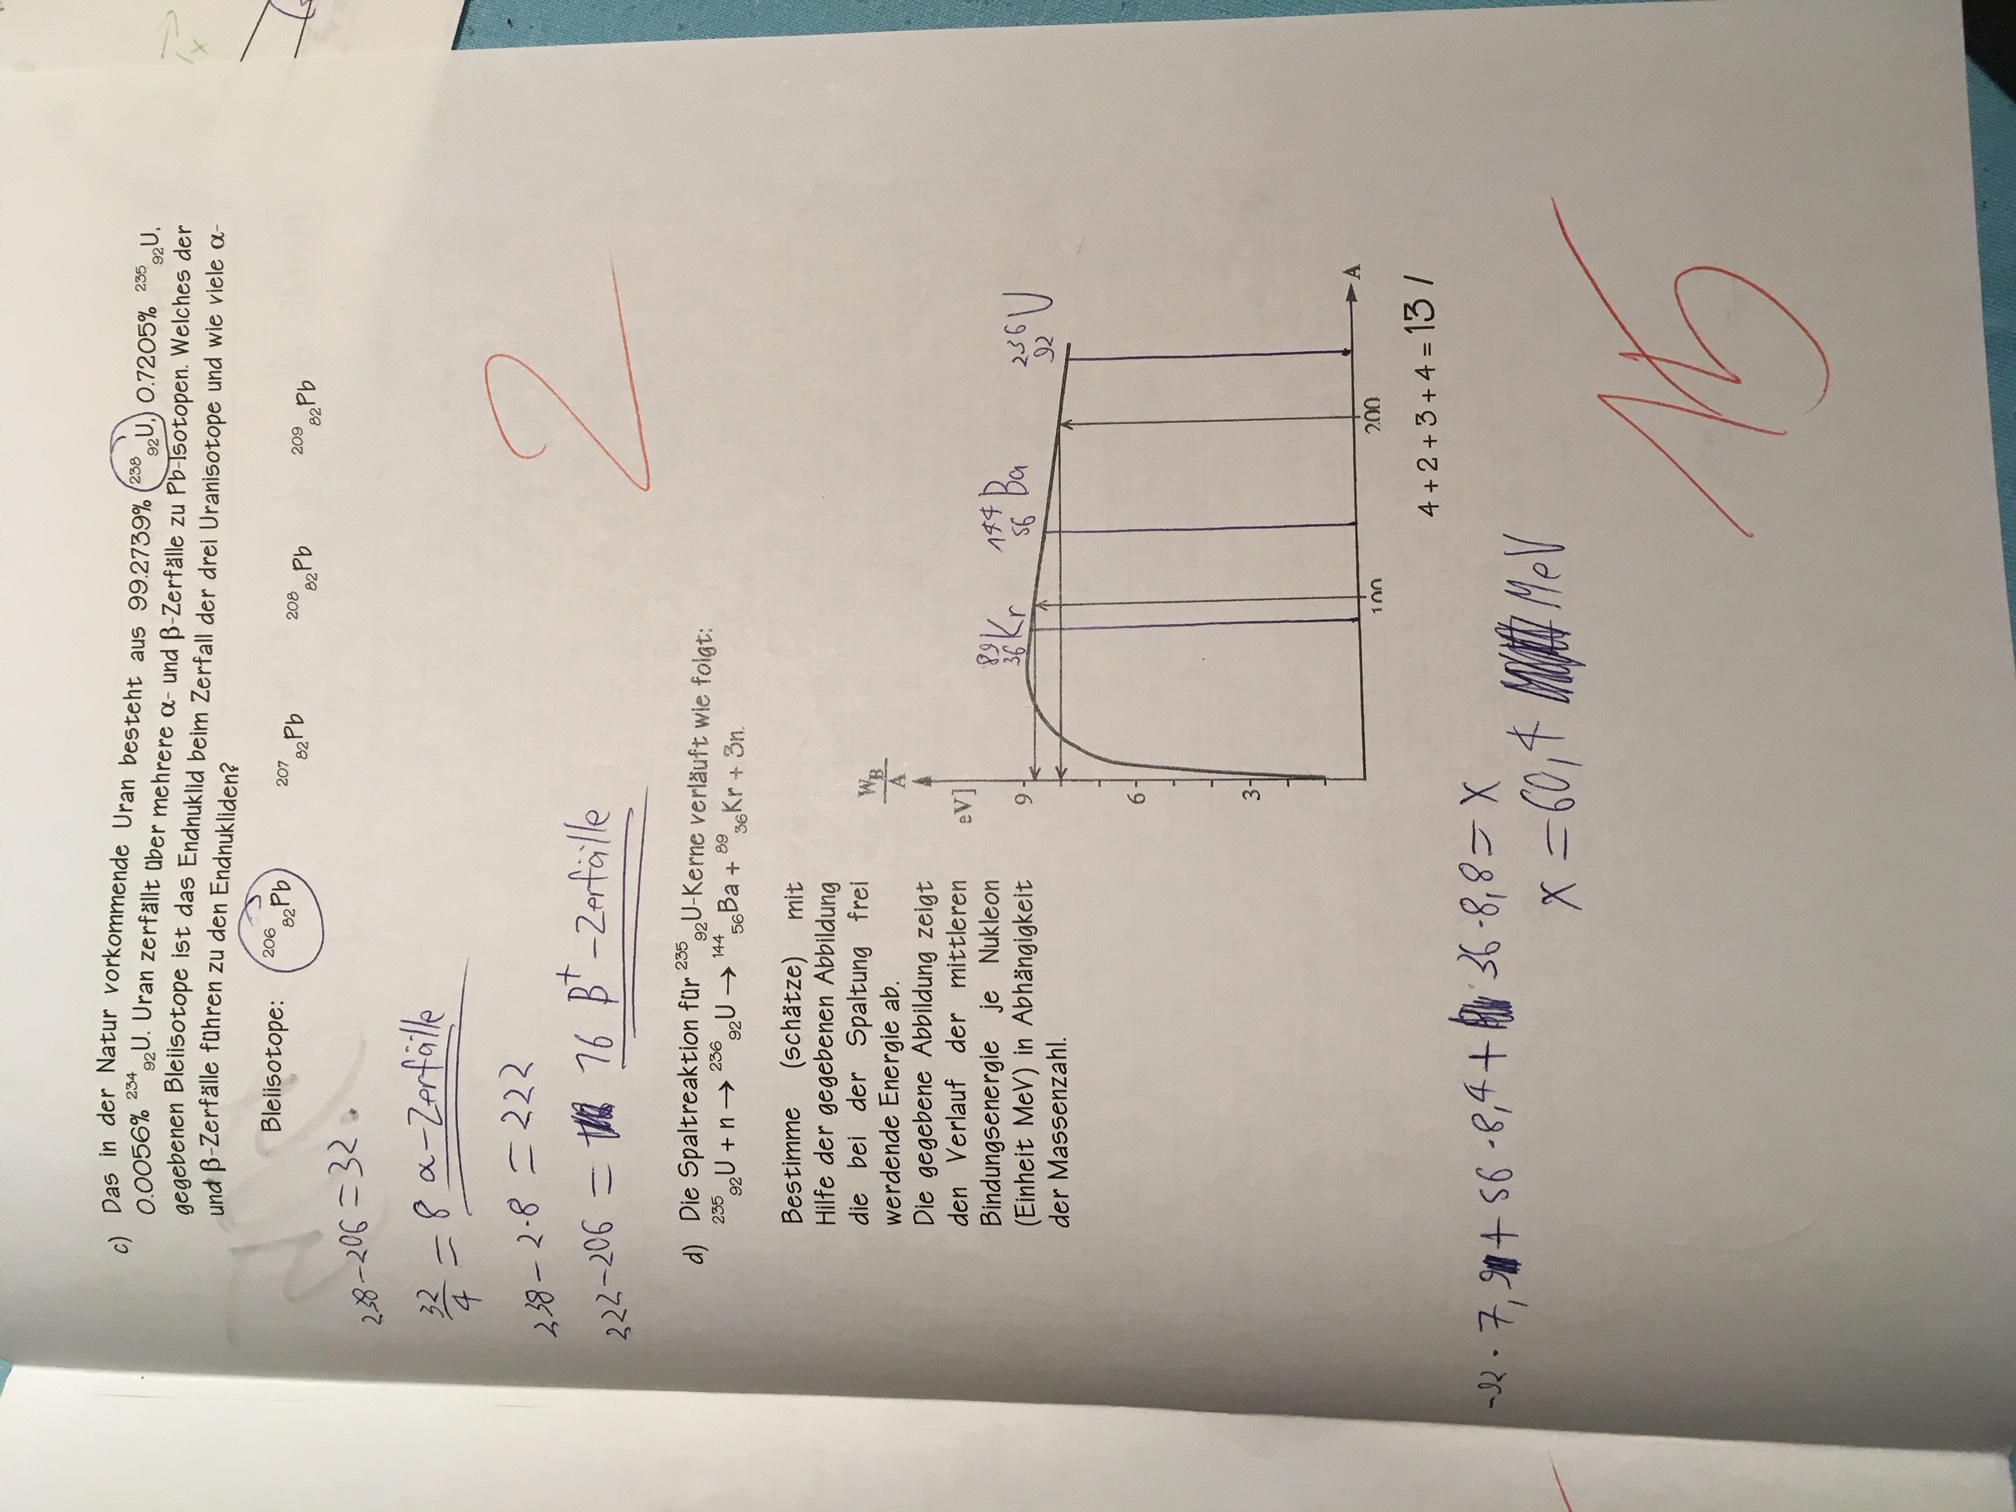 c) Das in der Natur vorkommende Uran besteht aus 99.2739% ²³⁸₉₂U, 0.7205% ²³⁵₉₂U,
0.0056% ²³⁴₉₂U. Uran zerfällt über mehrere α- und β-Zerfälle zu Pb-Isotopen. Welches der
gegebenen Bleiisotope ist das Endnuklid beim Zerfall der drei Uranisotope und wie viele α-
und β-Zerfälle führen zu den Endnukliden?
Bleiisotope: ²⁰⁶₈₂Pb ²⁰⁷₈₂Pb ²⁰⁸₈₂Pb ²⁰⁹₈₂Pb
238-206 = 32.
32/4 = 8 α-Zerfälle
238 - 2·8 = 222
222-206 = 16 β⁺-Zerfälle
2
d) Die Spaltreaktion für ²³⁵₉₂U-Kerne verläuft wie folgt:
²³⁵₉₂U + n → ²³⁶₉₂U → ¹⁴⁴₅₆Ba + ⁸⁹₃₆Kr + 3n.
Bestimme (schätze) mit
Hilfe der gegebenen Abbildung
die bei der Spaltung frei
werdende Energie ab.
Die gegebene Abbildung zeigt
den Verlauf der mittleren
Bindungsenergie je Nukleon
(Einheit MeV) in Abhängigkeit
der Massenzahl.
W_B
A
eV]
⁸⁹₃₆Kr ¹⁴⁴₅₆Ba ²³⁶₉₂U
9
6
3
100 200 A
4 + 2 + 3 + 4 = 13 /
-92 · 7,9 + 56 · 8,4 + 36 · 8,8 = x
x = 60,4 MeV
1,5